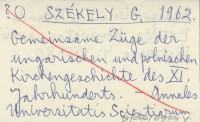 ?O SZÉKELY G. 1962.
Gemeinsame Züge der
ungarischen und polnischen
Kirchengeschichte des XI.
Jahrhunderts. – Annales
Universitatis Scientiarum